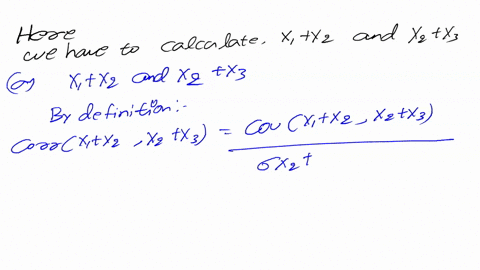 Here
we have to calculate. X1+X2 and X2+X3
(a) X1+X2 and X2+X3
By definition:-
Corr(X1+X2, X2+X3) = Cov(X1+X2, X2+X3)
σX2+